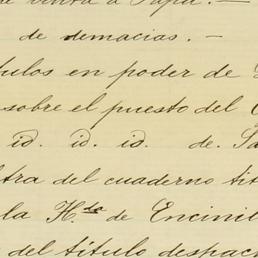 de venta á Papá. —
de demacias. —
tulos en poder de
sobre el puesto del
id. id. id. de. Sa
tra del cuaderno tit
la H.da de Encinil
del título despac